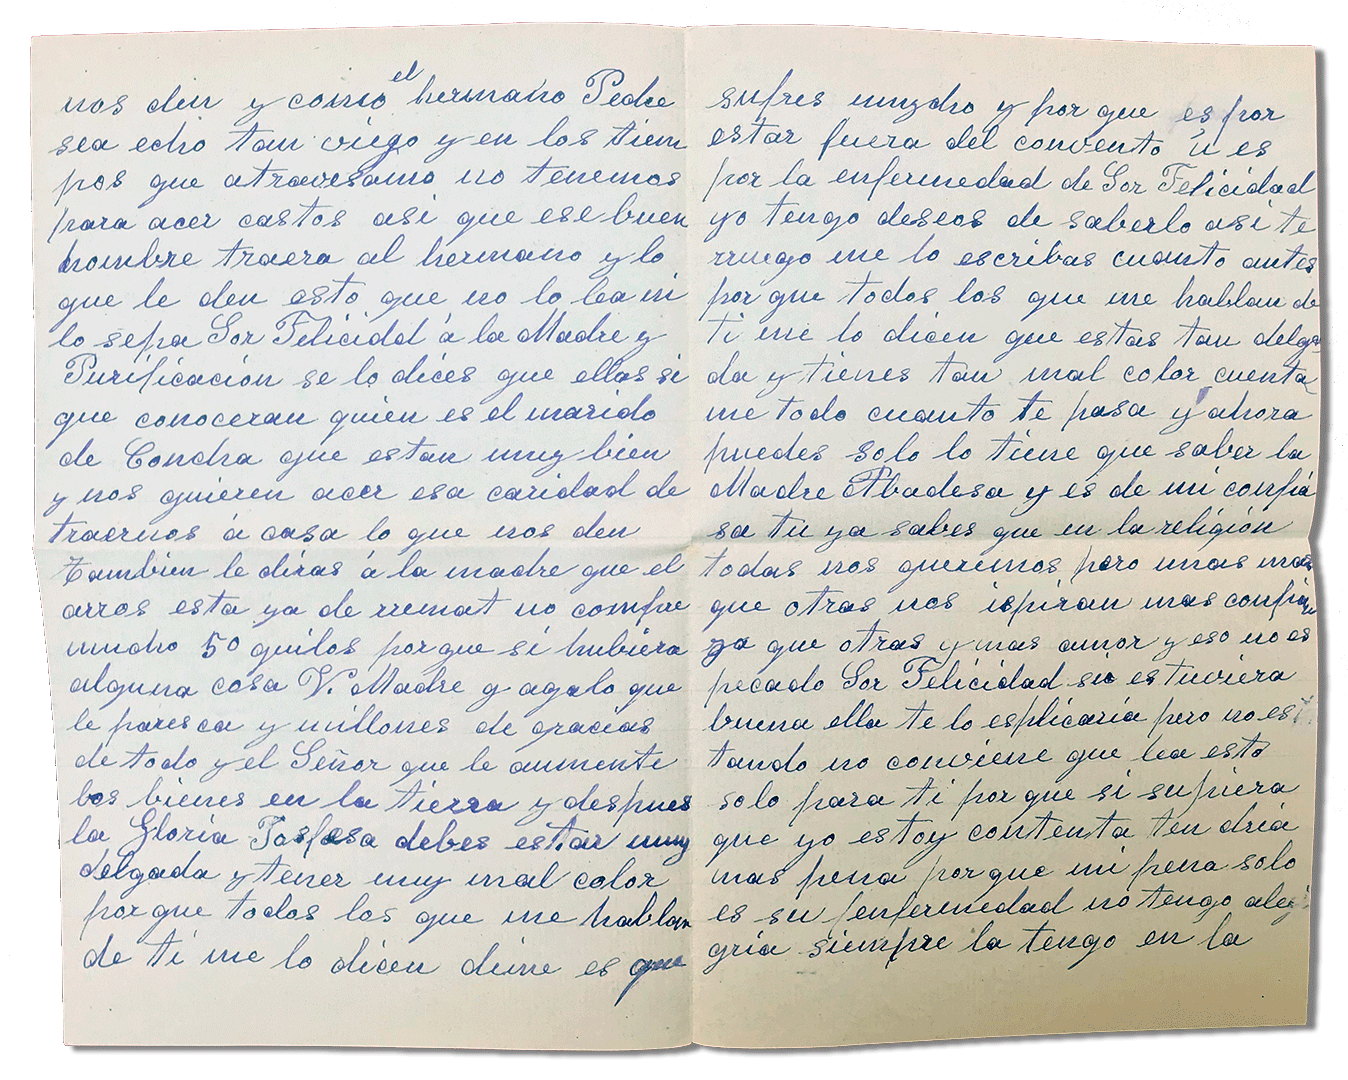 nos den y como el hermano Pedro
sea echo tan viego y en los tiem
pos que atravesamo no tenemos
para acer castos asi que ese buen
hombre traera al hermano y lo
que le den esto que no lo lea ni
lo sepa Sor Felicidd á la Madre y
Purificación se lo dices que ellas si
que conoceran quien es el marido
de Concha que estan muy bien
y nos quieren acer esa caridad de
traernos á casa lo que nos den
tambien le diras á la madre que el
arros esta ya de rremat no compre
mucho 50 quilos porque si hubiera
alguna cosa V. Madre y agalo que
le paresca y millones de gracias
de todo y el Señor que le aumente
los bienes en la tierra y despues
la Gloria debes estar muy
delgada y tener muy mal color
por que todos los que me hablan
de ti me lo dicen dime es que
sufres mucho y por que es por
estar fuera del convento ú es
por la enfermedad de Sor Felicidad
yo tengo deseos de saberlo asi te
rruego me lo escribas cuanto antes
por que todos los que me hablan de
ti me lo dicen que estas tan delga
da y tienes tan mal color cuenta
me todo cuanto te pasa y ahora
puedes solo lo tiene que saber la
Madre Abadesa y és de mi confia
sa tu ya sabes que en la religión
todas nos queremos pero unas mas
que otras nos ispiran mas confian
za que otras y mas amor y eso no es
pecado Sor Felicidad si estuviera
buena ella te lo esplicaria pero no es
tando no conviene que lea esto
solo para ti por que si supiera
que yo estoy contenta ten dria
mas pena por que mi pena solo
es su enfermedad no tengo ale
gria siempre la tengo en la